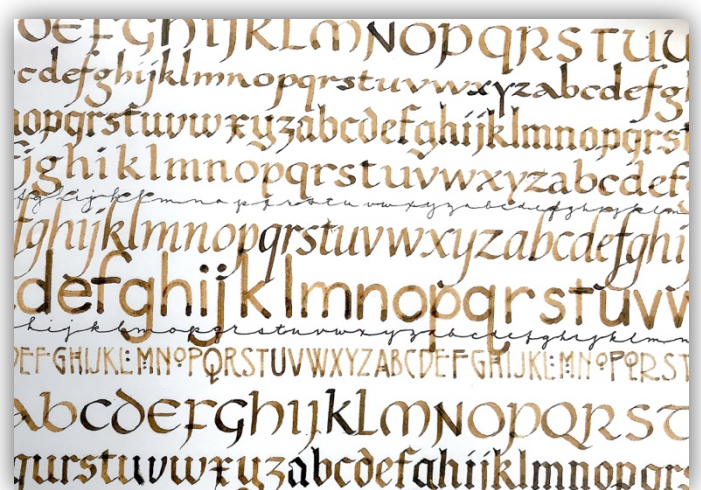 DEFGHIJKLMNOPQRSTUU
cdefghijklmnopqrstuvwxyzabcdefg
nopqrstuvwxyzabcdefghijklmnopqrst
fghiklmnopqrstuvwxyzabcdef
fghijklmnopqrstuvwxyzabcdefghi
defghijklmnopqrstuvw
hijklmnopqrstuvwxyzabcdefghijklmn
DEFGHIJKLMNOPQRSTUVWXYZABCDEFGHIJKLMNOPQRST
ABCDEFGHIJKLMNOPQRST
qurstuvwxyzabcdefghijklmnopqrs